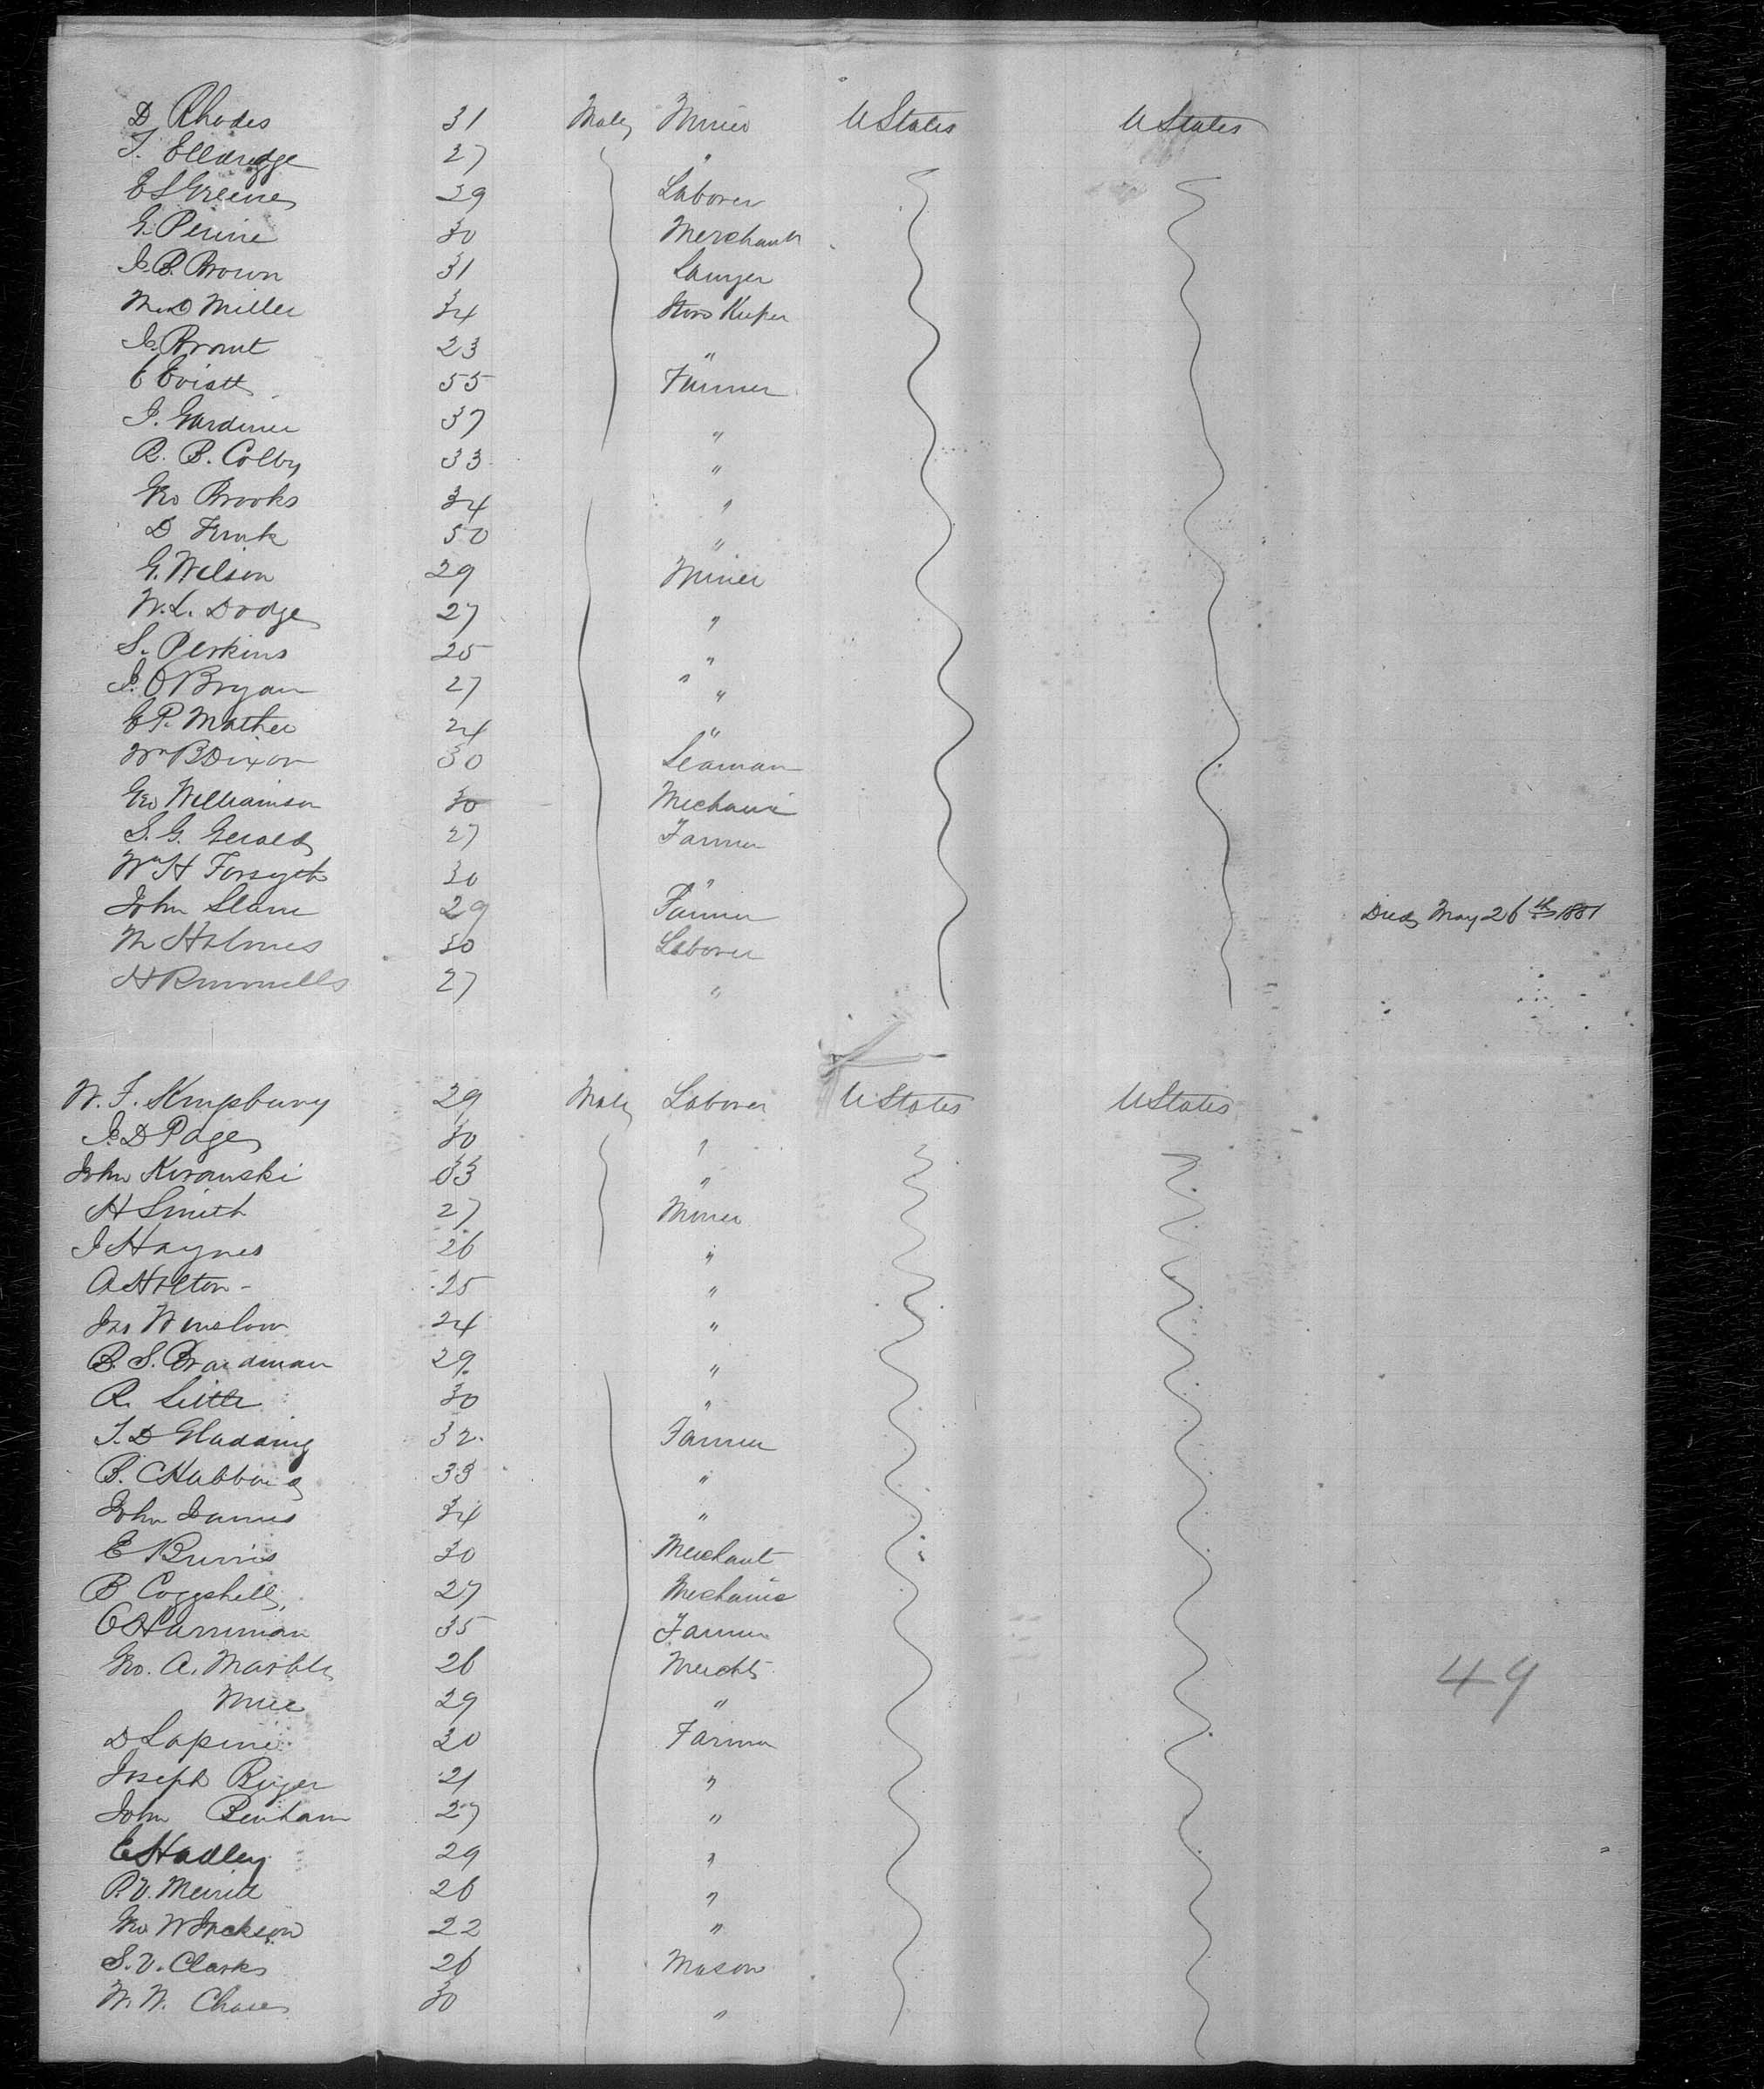 D Rhodes 31 Male Miner U States U States
T. Elldredge 27 "
E S Greene 29 Laborer
G. Perine 30 Merchant
J. B. Brown 31 Lawyer
Miller 34 Store Keeper
J. Brant 23 "
E Eviatt 55 Farmer
J. Gardiner 37 "
R. B. Colby 33 "
Geo Brooks 34 "
D Funk 50 "
G. Wilson 29 Miner
W. L. Dodge 27 "
S. Perkins 25 "
J. O Bryan 27 " "
E P. Mather 24 "
Wm B Dixon 30 Seaman
Geo Williamson 30 Mechanic
S. G. Gerald 27 Farmer
Wm H Forsyth 30 "
John Slam 29 Farmer Died May 26th 1851
M Holmes 30 Laborer
H Rummells 27 "
W. F. Kingsbury 29 Male Laborer U States U States
J. D Page 30 "
John Kirowski 33 "
H Smith 27 Miner
J Haynes 26 "
A Holton 25 "
Jno Winslow 24 "
B. S. Boardman 29 "
R. Little 30 "
T. D Gladding 32 Farmer
B. C Hubbard 33 "
John James 34 "
E Burris 30 Merchant
B Coggshell 27 Mechanic
C Harriman 35 Farmer
Geo. A. Marble 26 Mercht
29 "
D Lapine 30 Farmer
Joseph Ruger 21 "
John Benham 27 "
E Hadley 29 "
P. V. Merrill 26 "
Geo W Jackson 22 "
S. V. Clarke 26 Mason
W. W. Chase 30 "
49